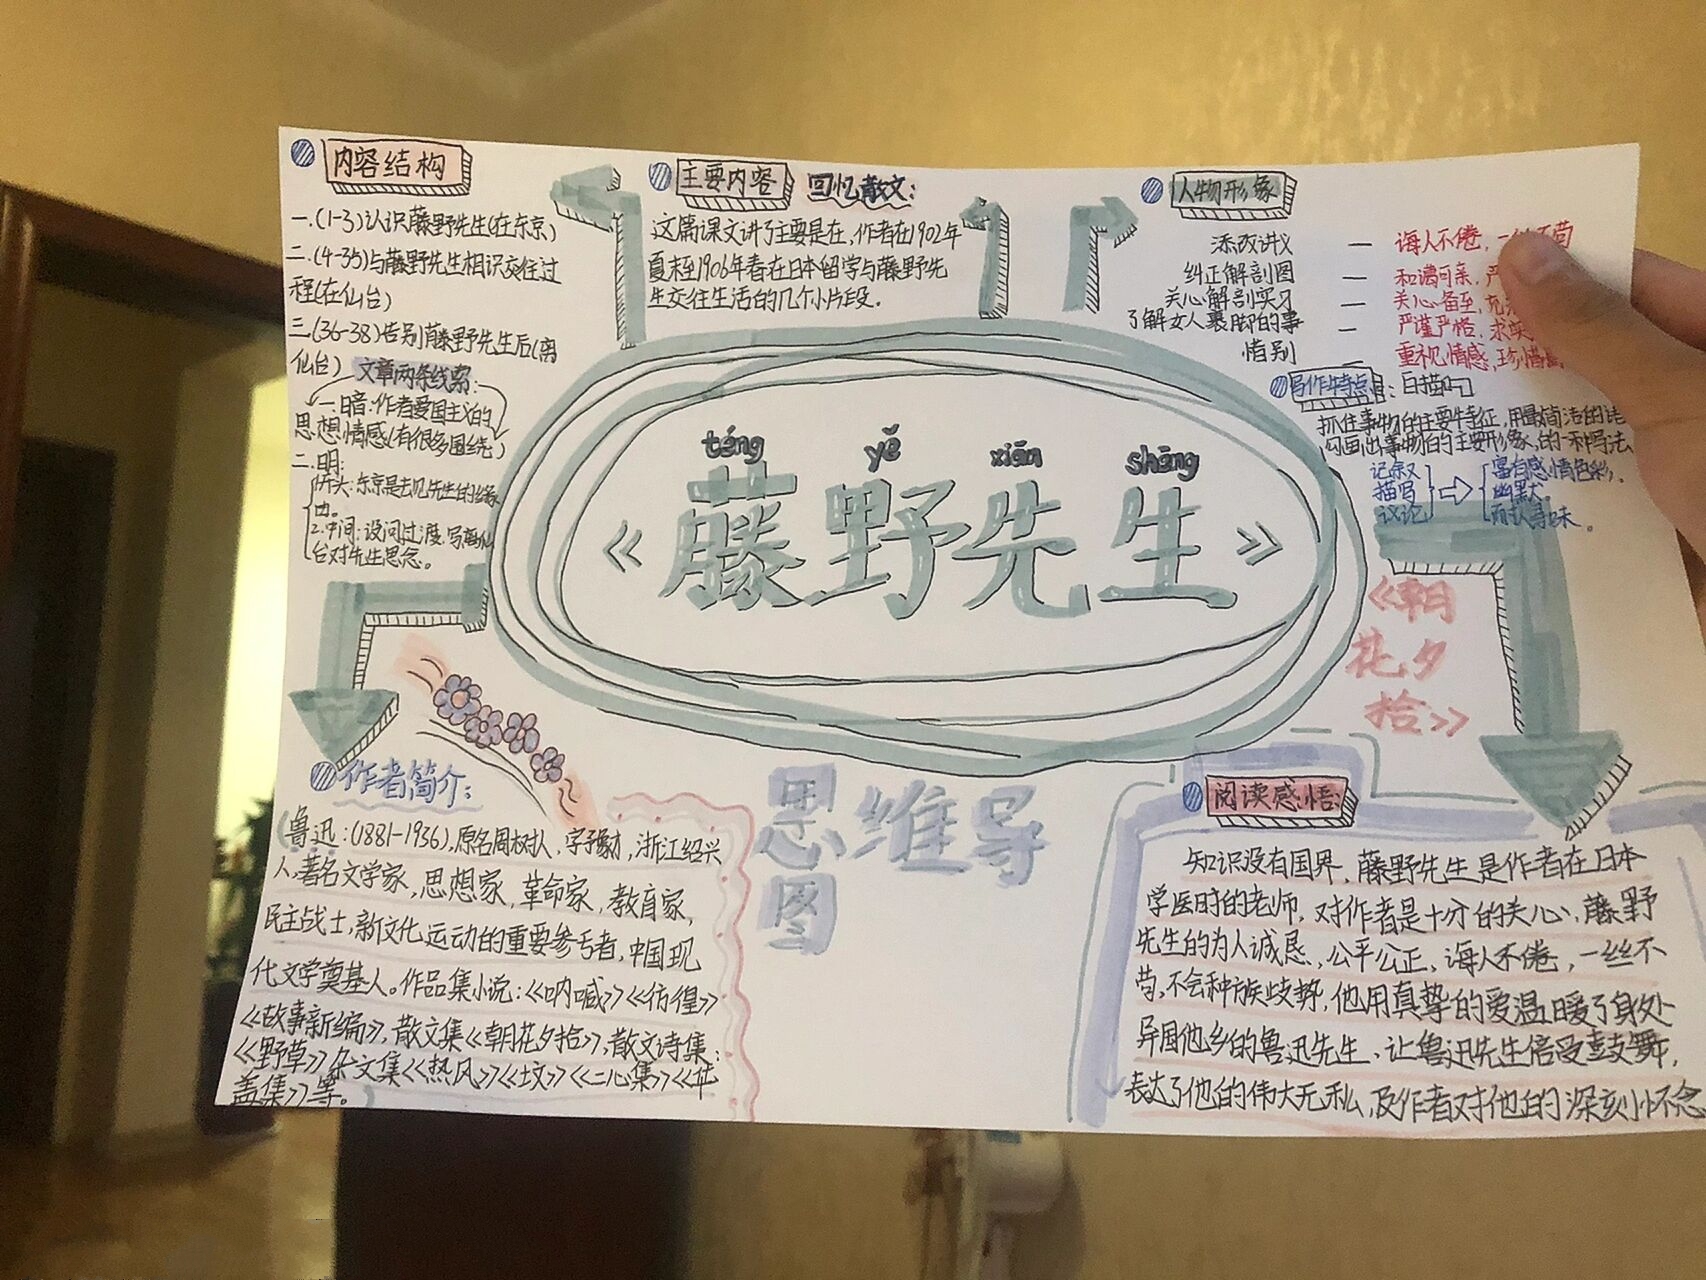 内容结构
一.(1-3)认识藤野先生(在东京)
二.(4-35)与藤野先生相识交往过
程(在仙台)
三.(36-38)告别藤野先生后(离
仙台)
文章两条线索:
一.暗:作者爱国主义的
思想情感(有很多围绕)
二.明:
开头:东京是去见先生的缘
由。
2.中间:设问过渡.写离仙
台对先生思念。
主要内容 回忆散文:
这篇课文讲了主要是在,作者在1902年
夏末至1906年春在日本留学与藤野先
生交往生活的几个小片段.
人物形象
添改讲义 — 诲人不倦,一丝不苟
纠正解剖图 — 和蔼可亲,严
关心解剖实习 — 关心备至,
了解女人裹脚的事 — 严谨严格,求实
惜别 — 重视情感,珍惜
写作特点:白描
抓住事物的主要特征,用最简洁的语
勾画出事物的主要形象,的一种写法
记叙
描写
议论
富有感情色彩.
幽默.
耐人寻味.
téng yě xiān shēng
《藤野先生》
《朝
花夕
拾》
思维导
图
作者简介:
(鲁迅:(1881-1936),原名周树人,字豫才,浙江绍兴
人,著名文学家,思想家,革命家,教育家,
民主战士,新文化运动的重要参与者,中国现
代文学奠基人。作品集小说:《呐喊》《彷徨》
《故事新编》,散文集《朝花夕拾》,散文诗集:
《野草》杂文集《热风》《坟》《二心集》《华
盖集》等。
阅读感悟:
知识没有国界,藤野先生是作者在日本
学医时的老师,对作者是十分的关心,藤野
先生的为人诚恳,公平公正,诲人不倦,一丝不
苟,不会种族歧势,他用真挚的爱温暖了身处
异国他乡的鲁迅先生、让鲁迅先生倍受鼓舞,
表达了他的伟大无私,及作者对他的深刻怀念